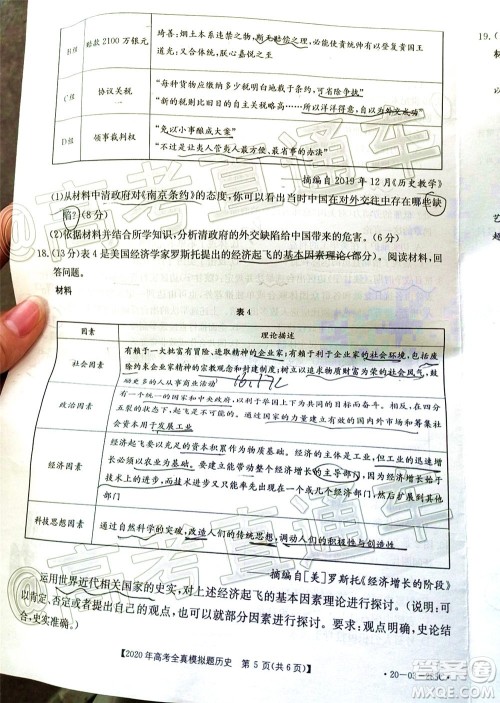 B组 赔款2100万银元 琦善:烟土本系违禁之物,断无赔偿之理,
道光:又合体统,朕心嘉悦之至
C组 协议关税 "每种货物应纳多少税明白地载于条约,可省除争执"
"新的税则比旧日的自主关税还高……所以洋洋得意,自以为外交成功"
D组 领事裁判权 "免以小事酿成大案"
"不过是让夷人管夷人最方便、最省事的办法"
摘编自2019年12月《历史教学》
(1)从材料中清政府对《南京条约》的态度,你可以看出当时中国在对外交往中存在哪些缺
陷?(8分)
(2)依据材料并结合所学知识,分析清政府的外交缺陷给中国带来的危害。(6分)
18.(13分)表4是美国经济学家罗斯托提出的经济起飞的基本因素理论(部分)。阅读材料,回
答问题。
材料
表4
因素 理论描述
社会因素 有赖于一大批富有冒险、进取精神的企业家;有赖于有利于企业家的社会环境,包括废
除约束企业家精神的宗教观念和封建制度;树立以追求物质财富为荣的社会风气,鼓
励更多的人从事商业活动
政治因素 有一个统一的国家和中央政府,以利于举国上下为共同的目标而奋斗。相反,在四分
五裂的状态下,很难实现起飞。通过国家的力量建立有效的国内外市场和筹集
社会资本用于发展工业
经济因素 经济起飞要以充足的资本积累作为物质基础。经济的主体是工业,但工业的迅速增
长必须以农业为基础。要发展能够带动整个经济增长的主导部门,
技术上的进一步
部门
科技思想因素 通过自然科学的突破,改造人们的传统思想,调动人们的积极性与创造性
摘编自[美]罗斯托《经济增长的阶段》
运用世界近代相关国家的史实,对上述经济起飞的基本因素理论进行探讨。(说明:可
以肯定、否定或者提出自己的观点,也可以就部分因素进行探讨。观点明确,史论结
合,史实准确。)
【2020年高考全真模拟题历史 第5页(共6页)】
19.
高考直通车